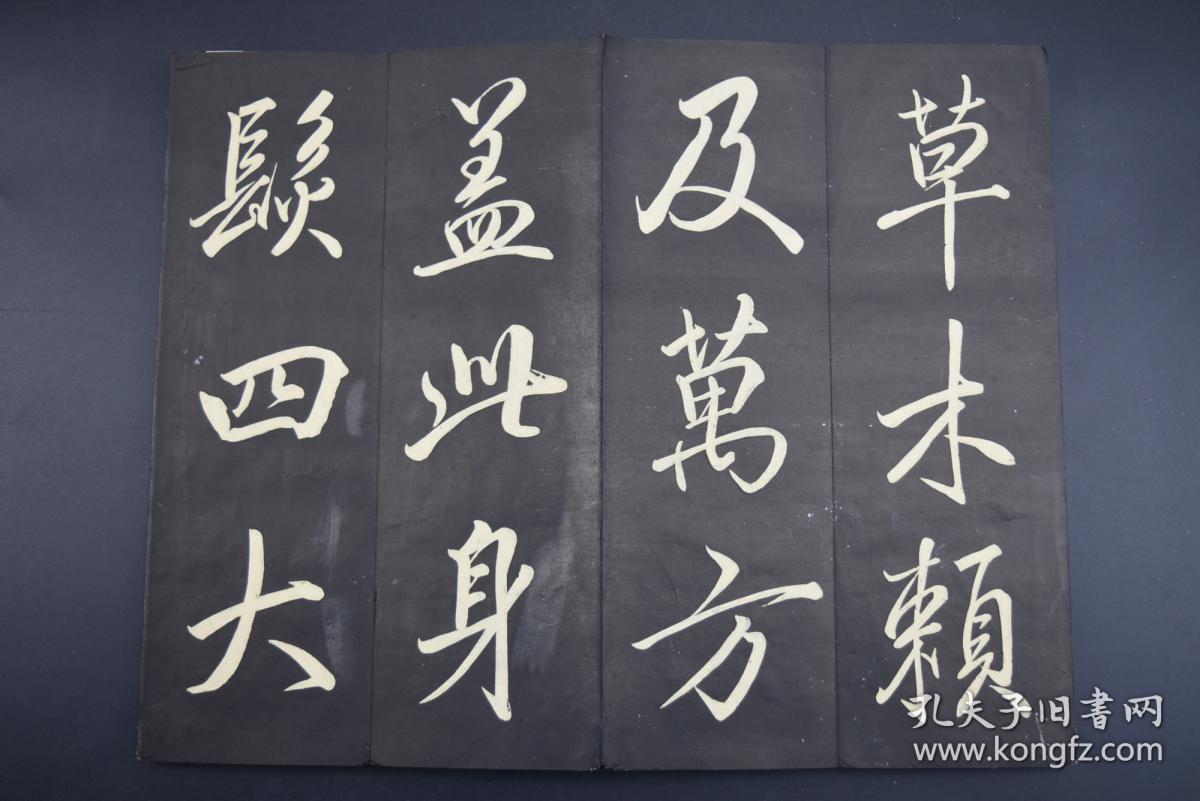 草木頼
及萬方
盖此身
髮四大
孔夫子旧書网
www.kongfz.com